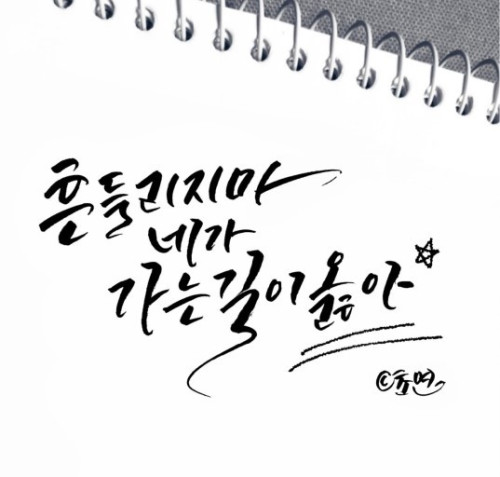 흔들리지마
네가
가는길이옳아